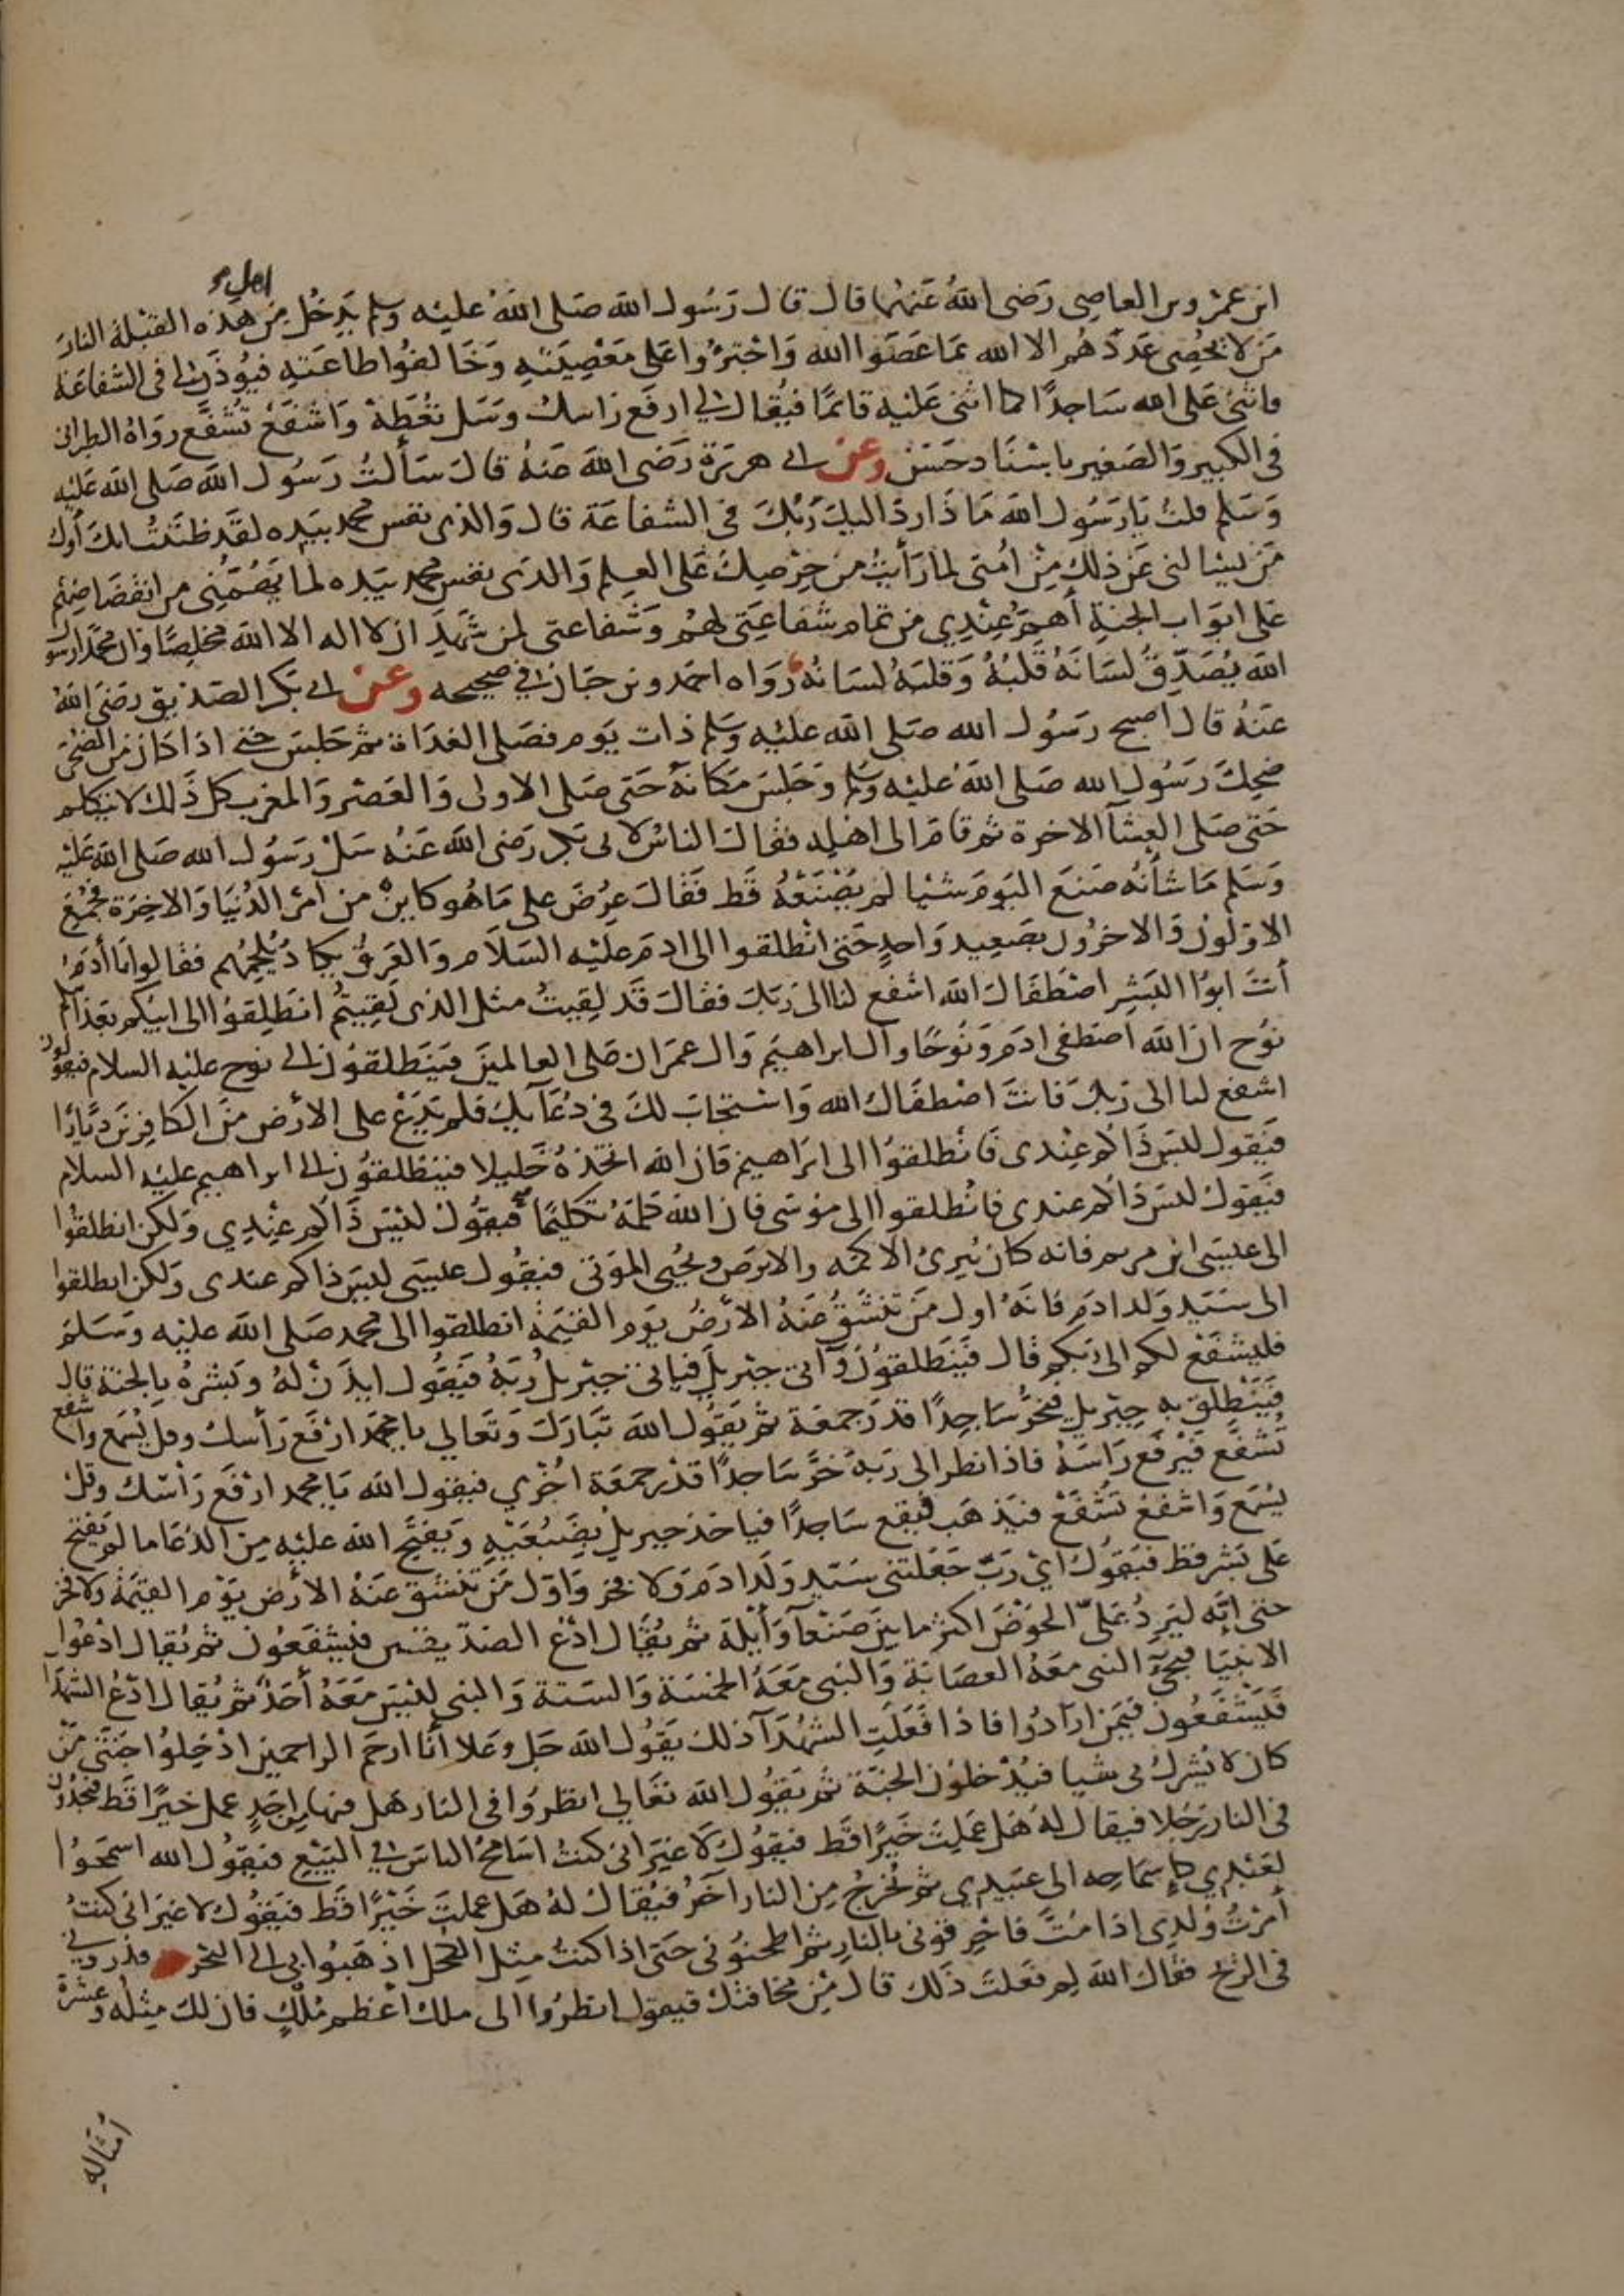 ابن عمرو بن العاصي رَضى اللهُ عَنهُما قال قال رَسُول الله صَلى اللهُ عليْه وسلم يَدخُل مِن اهل هَذه القبْلة النارَ
مَن لا يُحْصِى عَدَدَهُم الا الله بمَا عَصَوا الله وَاجْترَؤُا عَلى مَعْصِيَتِهِ وَخَالفوُا طاعَتهِ فيُوذَن لى فى الشفاعَة
فاثنى عَلى الله سَاجدًا كما اثنى عَليْه قائمًا فيُقال لى ارفَع راسك وَسَل تعْطَهْ وَاشفَعْ تُشفَّع روَاهُ الطبرانى
فى الكبير وَالصَغير باسْنَاد حَسَن وعن ابى هريرَة رَضى الله عَنهُ قالَ سَألتُ رَسُول الله صَلى الله عَليْه
وَسَلم قلتُ يَا رَسُول الله مَاذَا ردّ اليكَ رَبُّكَ فى الشفاعَة قال وَالذى نفس محمد بيَده لقَد ظنَنتُ انك أول
مَن يَسْالنى عَن ذلك مِنْ امُتى لما رَأيتُ مِن حِرْصِكَ عَلى العِلم وَالذى نفس محمد بيَده لما يَهُمّنى من انقصَافهم
عَلى ابوَاب الجنةِ أهمُّ عِنْدِي من تمام شفاعَتى لهُمْ وَشفاعتى لمن شَهدَ ان لا اله الا الله مخلِصًا وان محمدًا رسول
الله يُصَدِّقُ لسَانَهُ قَلبُهُ وَقلبَهُ لسَانُهُ رَوَاه احمَد وبن حبَان في صحيحه وعن ابى بَكر الصَديق رضَىَ اللهُ
عَنهُ قالَ اصبح رسُول الله صَلى الله عليْه وَسَلم ذات يَوم فصَلى الغدَاة ثم جَلسَ حَتى اذا كان من الضحى
ضحِكَ رَسُول الله صَلى اللهُ عليْه وَسَلم وَجَلسَ مَكانهُ حَتى صَلى الاولى وَالعَصْر وَالمغرب كل ذَلك لا يَتكلم
حَتى صَلى العِشآ الاخرة ثم قامَ الى اهْله فقالَ الناسُ لابى بَكر رَضى الله عَنهُ سَلْ رَسُول الله صَلى الله عَليْه
وَسَلم مَا شأنُه صَنعَ اليَومَ شيْا لم يَصْنَعْهُ قَط فَقَالَ عُرِضَ علي مَا هُو كاينٌ من امْر الدُنيَا وَالاخِرَة فجُمِعَ
الاوَلُون وَالاخرُون بصَعِيد وَاحدٍ حَتى انطلقوا الى ادمَ عليْه السَلاَم وَالعَرقُ يكادُ يُلجمُهم فقالوا يَا أدمُ
أنتَ ابوُا البَشِر اصْطَفاكَ الله اشفع لنا الى رَبكَ فقالَ قَد لقِيتُ مثل الذى لقِيتُم انطَلِقوُا الى ابيكم بَعْد ابيكم
نوُح ان الله اصطفى ادمَ وَنوُحًا وال ابراهيمَ وَال عمرَان عَلى العالمينَ فيَنطلقوُن الى نوح عليه السلام فيقوُلون
اشفع لنا الى رَبكَ فانتَ اصْطفَاك الله وَاسْتجَابَ لكَ فى دُعَآيكَ فلم يَدَعْ على الأرْض مِنَ الكافِرينَ دَيَّارًا
فيَقول ليسَ ذَاكم عِنْدى فَانْطلقوا الى ابرَاهيم فان الله اتخَذهُ خَليلا فينطلقوُن الى ابراهيم عليه السلام
فيَقولُ ليسَ ذاكم عندى فانْطلقوا الى موُسَى فان الله كلمَهُ تكليمًا فيقوُل ليْسَ ذَاكم عِنْدِي وَلكن انطلقوُا
الى عيسَى ابن مريم فانه كان يُبرئ الاكمَه والابرَص ويُحْيى الموَتى فيقوُل عيسَى ليسَ ذاكم عندى وَلكن انطلقوا
الى سَيّد وَلد ادمَ فانهُ اول مَن تنشقُّ عَنهُ الأرْضُ يوَم القيَمة انطلقوا الى محمد صَلى الله عليه وَسَلم
فليشفَعْ لكم الى رَبكم قال فيَنطلقوُن وَآتى جبْريل فياتى جبْريلُ رَبهُ فيَقوُل ايذَنْ لهُ وَبَشرهُ بالجنة قال
فيَنْطلق به جبْريل فيخرُّ سَاجدًا قدرَ جمعَة ثم يَقوُل الله تبَارَكَ وَتعَالى يا محمد ارْفَع رَأسك وقل يُسْمَع واشفع
تُشفّع فيَرْفع رَاسَهُ فاذا نظر الى رَبهِ خرّ سَاجدًا قدْرَ جمعَة اخرْي فيقول الله يَا محمد ارْفَع رَأسَك وقل
يُسْمَع وَاشفَعْ تُشَفّعْ فيَذهَب فيقع سَاجدًا فياخذ جبريلُ بضَبْعَيْهِ وَيفتَح الله عليْه مِنَ الدُعَا ما لم يفتح
عَلى بَشر قط فيَقوُل ايْ رَبّ جَعَلتنى سَيّد وَلد ادمَ وَلا فخر وَاوّل مَن تنشق عَنهُ الأرْض يَوْم القيمَة ولا فخر
حتى انّه ليَردُ عَلىّ الحَوْضَ اكثرُ ما بين صَنعَآ وَأيْلَة ثم يُقال ادْعُ الصدّيقين فيشفَعُون ثم يُقال ادْعُوا
الانبيَا فيجىءُ النبى مَعَهُ العصَابَة وَالنبى مَعَهُ الخمسَة وَالستة وَالنبى ليْسَ مَعَهُ أحَدٌ ثم يُقال ادْعُ الشهدَا
فيَشفَعُون فيمَن ارَادُوا فاذا فَعَلتِ الشهدَآ ذلك يَقوُل الله جَل وَعَلا أنا ارحَم الراحمين ادْخِلوُا جَنتى مَنْ
كان لا يُشركُ بى شيا فيُدْخلوُن الجنّة ثم يَقوُل الله تعَالى انظرُوا فى النار هَل فيها مِن احَدٍ عمل خيرًا قَط فيجدُون
فى النار رَجُلا فيقال لهُ هَل عَمِلتَ خَيرًا قط فيقوُل لا غيَرَ انى كنتُ اسَامحُ الناسَ في البَيْع فيَقوُل الله اسمَحوُا
لعَبْدِي كاِسمَاحِه الى عَبيدِي ثم يُخرجُ مِن النار آخَرُ فيُقال لهُ هَل عملتَ خَيْرًا قَط فيَقوُل لا غيَرَ انى كنتُ
أمَرْتُ وُلدى اذا مُتّ فاحْرقونى بالنار ثم اطحنوُنى حَتى اذا كنتُ مِثل الكحل اذهَبُوا بى الى البَحْر فذرونى
فى الريْح فقال الله لِم فعَلتَ ذَلك قال مِنْ مخافتك فيقول انظرُوا الى ملك أعْظم مُلْكٍ فان لكَ مِثلهُ وعَشرَة
امْثَالِهِ